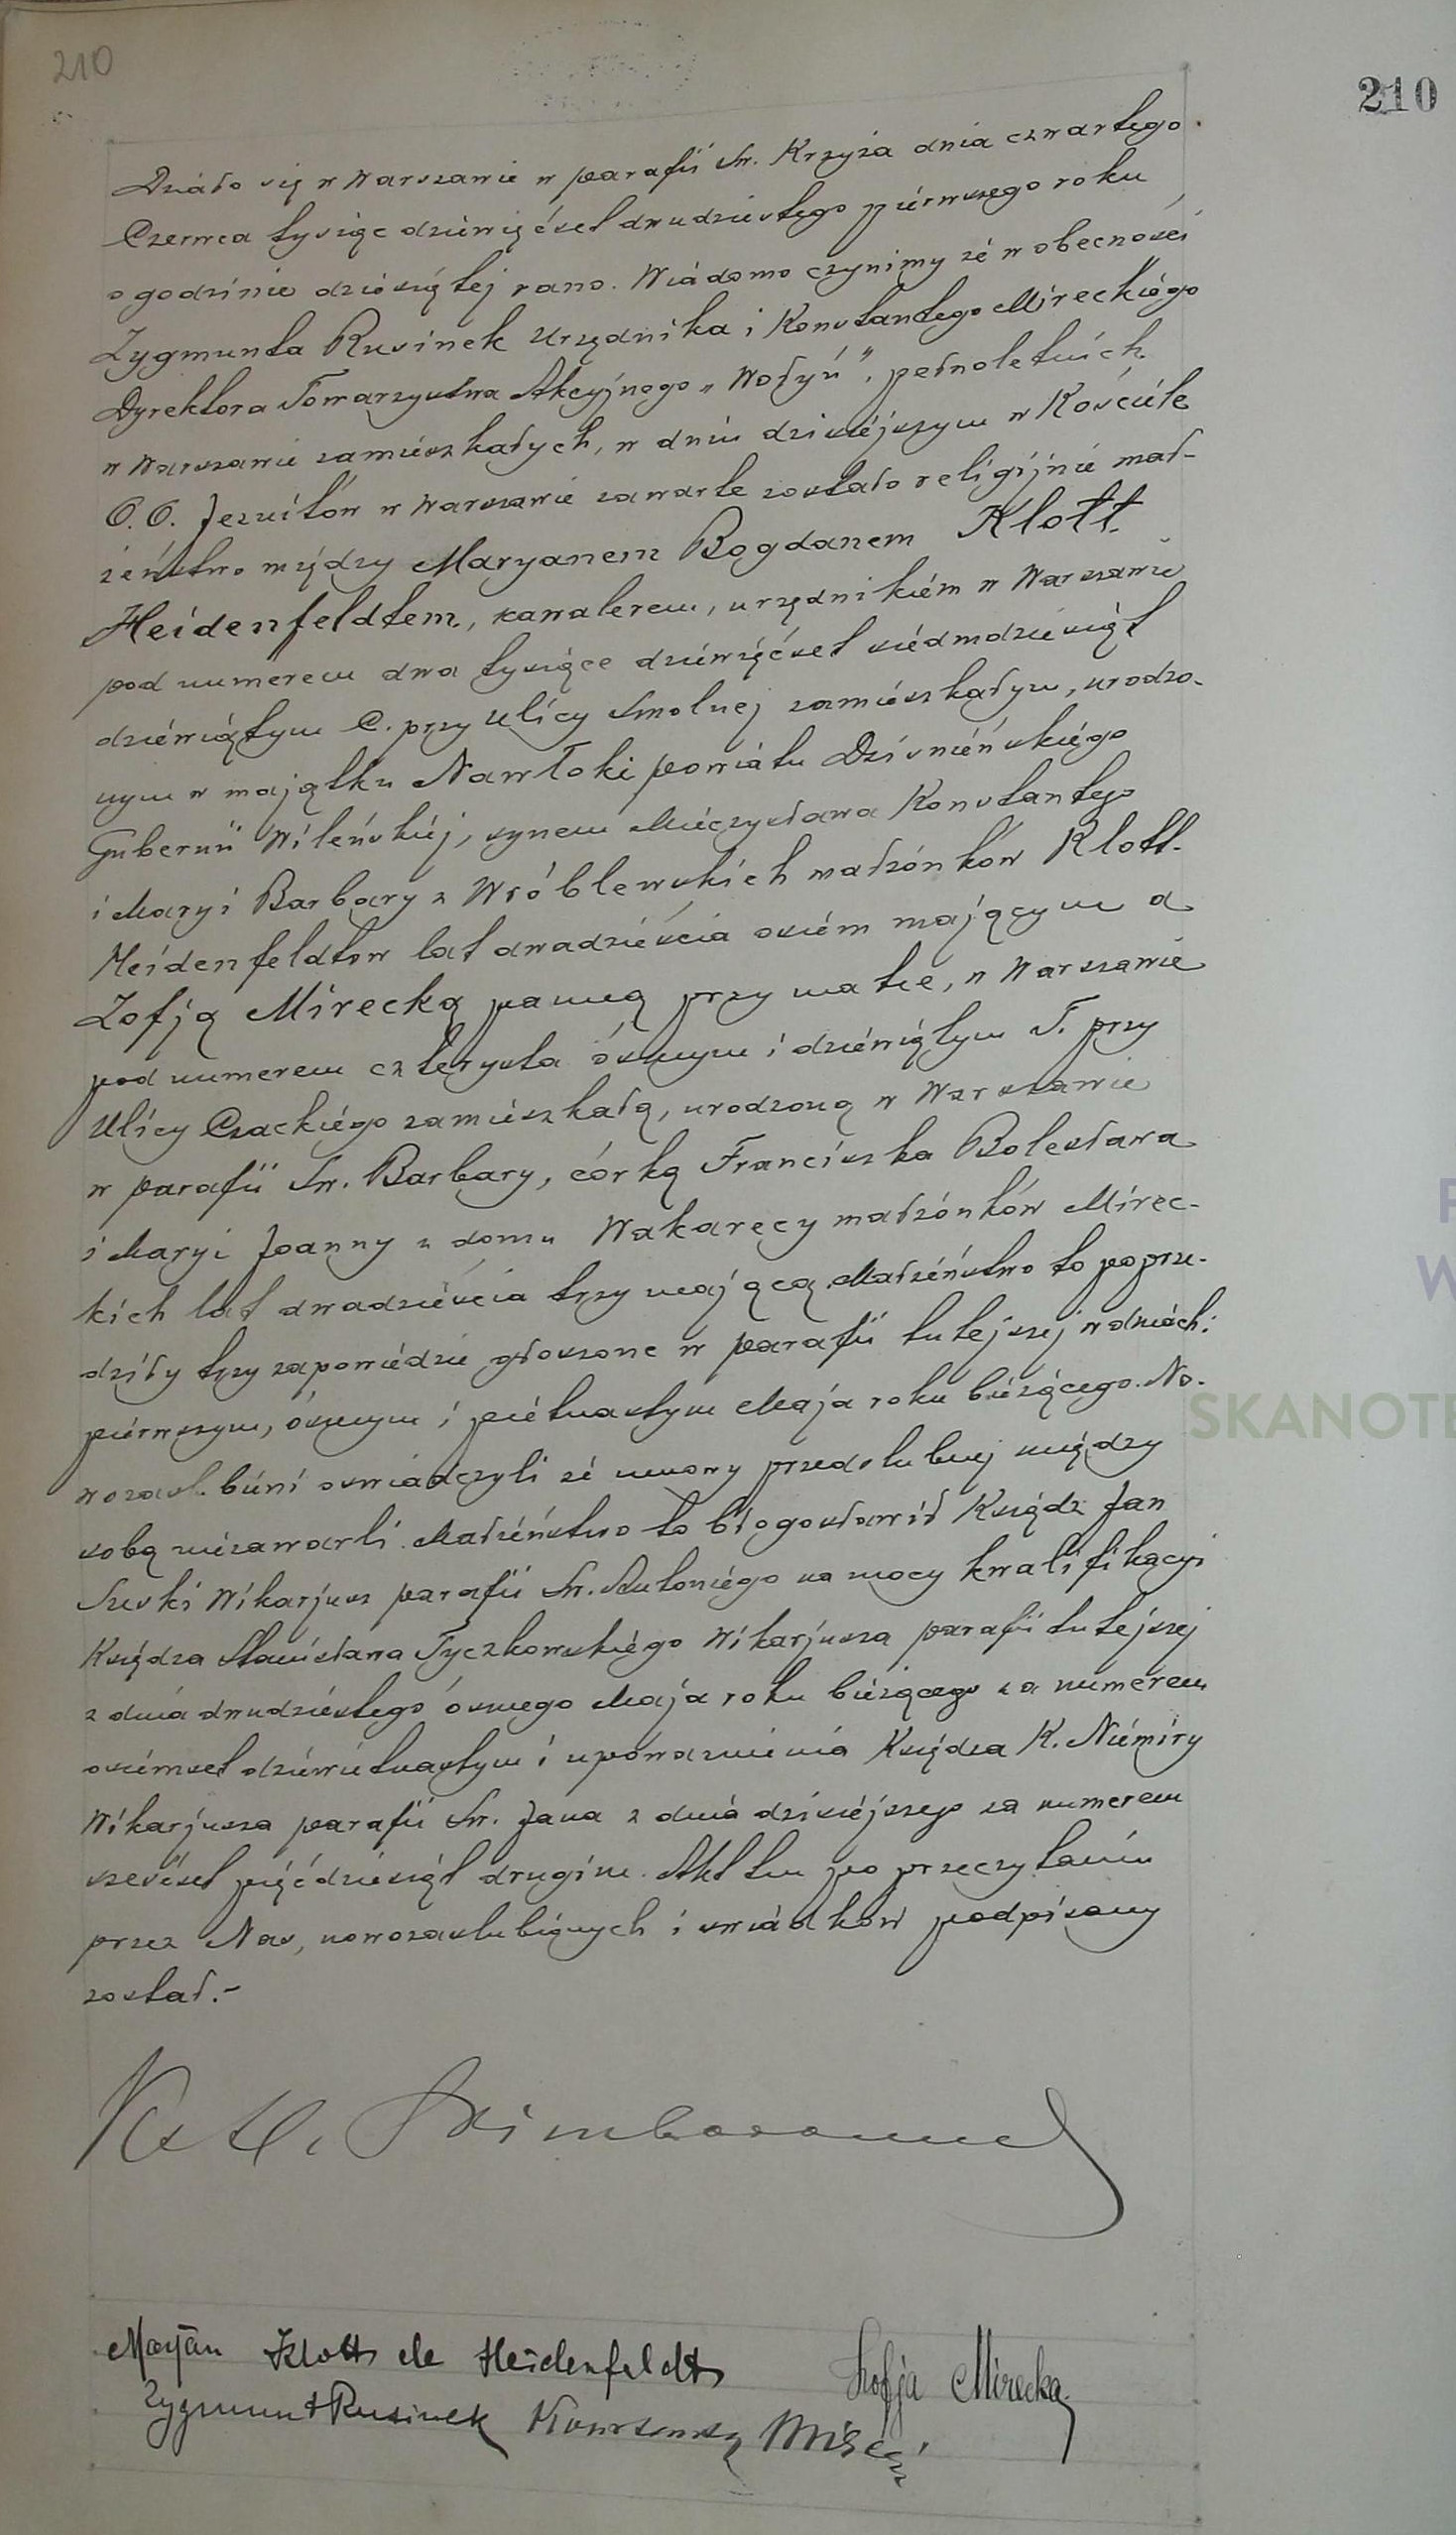 210
210
Działo się w Warszawie w parafii Św. Krzyża dnia czwartego
Czerwca tysiąc dziewięćset dwudziestego pierwszego roku
o godzinie dziesiątej rano. Wiadomo czynimy że w obecności
Zygmunta Rusinek Urzędnika i Konstantego Mireckiego
Dyrektora Towarzystwa Akcyjnego „Wołyń", pełnoletnich
w Warszawie zamieszkałych, w dniu dzisiejszym w Kościele
O.O. Jezuitów w Warszawie zawarte zostało religijnie mał-
żeństwo między Maryanem Bogdanem Klott
Heidenfeldtem, kawalerem, urzędnikiem w Warszawie
pod numerem dwa tysiące dziewięćset siedmdziesiąt
dziewiątym C. przy Ulicy Smolnej zamieszkałym, urodzo-
nym w majątku Nawłoki powiatu Dziśnieńskiego
Gubernii Wileńskiej, synem Mieczysława Konstantego
i Maryi Barbary z Wróblewskich małżonków Klott-
Heidenfeldtów lat dwadzieścia osiem mającym a
Zofją Mirecką panną przy matce, w Warszawie
pod numerem czterysta ósmym i dziewiątym T. przy
Ulicy Czackiego zamieszkałą, urodzoną w Warszawie
w parafii Św. Barbary, córką Franciszka Bolesława
i Maryi Joanny z domu Wakarecy małżonków Mirec-
kich lat dwadzieścia trzy mającą. Małżeństwo to poprze-
dziły trzy zapowiedzie głoszone w parafii tutejszej w dniach:
pierwszym, ósmym i piętnastym Maja roku bieżącego. No-
wozaślubieni oświadczyli że umowy przedślubnej między
sobą niezawarli. Małżeństwo to błogosławił Ksiądz Jan
Szeski Wikarjusz parafii Św. Antoniego na mocy kwalifikacyi
Księdza Stanisława Tyczkowskiego Wikarjusza parafii tutejszej
z dnia dwudziestego ósmego Maja roku bieżącego za numerem
osiemset dziewietnastym i upoważnienia Księdza K. Niemiry
Wikarjusza parafii Św. Jana z dnia dzisiejszego za numerem
sześćset pięćdziesiąt drugim. Akt ten po przeczytaniu
przez Nas, nowozaślubionych i świadków podpisany
został.-
Marjan Klott de Heidenfeldt Zofja Mirecka
Zygmunt Rusinek Konstanty Mirecki
SKANOTE